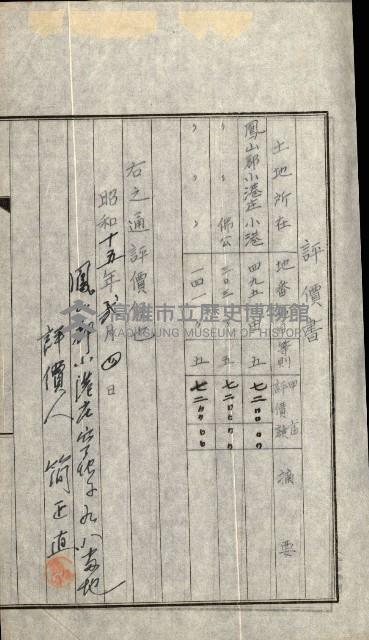 評價書
土地所在 地番 等則 甲當評價額 摘要
鳳山郡小港庄小港 四九五 田 五 七二〇〇
〃 〃 〃 佛公 二〇三 〃 五 七二〇〇
〃 〃 〃 一四一 〃 五 七二〇〇
右之通評價ス也
昭和十五年 月四日
鳳山郡小港庄 八番地
評價人 簡正直
高雄市立歷史博物館
KAOHSIUNG MUSEUM OF HISTORY